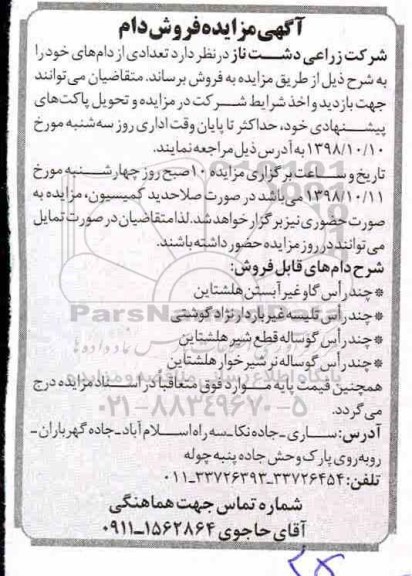 آگهی مزایده فروش دام
شرکت زراعی دشت ناز در نظر دارد تعدادی از دام‌های خود را
به شرح ذیل از طریق مزایده به فروش برساند. متقاضیان می‌توانند
جهت بازدید و اخذ شرایط شرکت در مزایده و تحویل پاکت‌های
پیشنهادی خود، حداکثر تا پایان وقت اداری روز سه‌شنبه مورخ
۱۳۹۸/۱۰/۱۰ به آدرس ذیل مراجعه نمایند.
تاریخ و ساعت برگزاری مزایده ۱۰ صبح روز چهارشنبه مورخ
۱۳۹۸/۱۰/۱۱ می‌باشد در صورت صلاحدید کمیسیون، مزایده به
صورت حضوری نیز برگزار خواهد شد. لذا متقاضیان در صورت تمایل
می‌توانند در روز مزایده حضور داشته باشند.
شرح دام‌های قابل فروش:
* چند رأس گاو غیر آبستن هلشتاین
* چند رأس تلیسه غیر باردار نژاد گوشتی
* چند رأس گوساله قطع شیر هلشتاین
* چند رأس گوساله نر شیرخوار هلشتاین
همچنین قیمت پایه موارد فوق متعاقبا در اسناد مزایده درج
می‌گردد.
آدرس: ساری-جاده نکا-سه راه اسلام آباد-جاده گهرباران-
روبه‌روی پارک وحش جاده پنبه چوله
تلفن: ۳۳۷۲۶۴۵۴-۳۳۷۲۶۳۹۳-۰۱۱
شماره تماس جهت هماهنگی
آقای حاجوی ۱۵۶۲۸۶۴-۰۹۱۱
ParsNamadData
۰۲۱-۸۸۳۴۹۶۷۰-۵